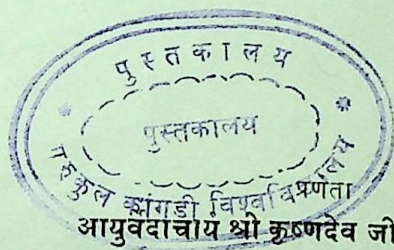 पुस्तकालय
पुस्तकालय
गुरुकुल कांगड़ी विश्वविद्यालय
आयुर्वेदाचार्य श्री कृष्णदेव जी